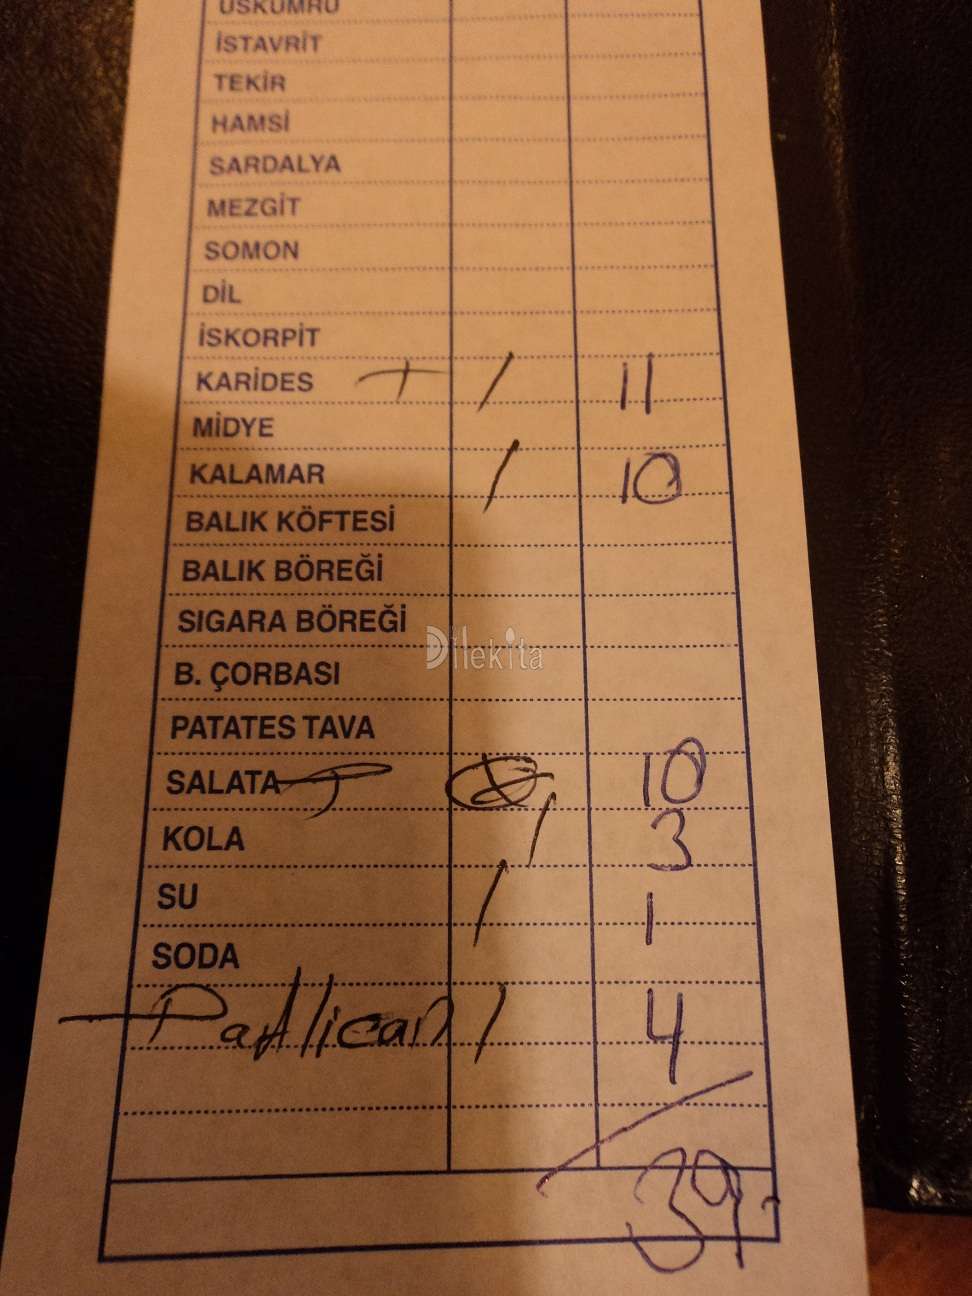 USKUMRU
İSTAVRİT
TEKİR
HAMSİ
SARDALYA
MEZGİT
SOMON
DİL
İSKORPİT
KARİDES + / 11
MİDYE
KALAMAR / 10
BALIK KÖFTESİ
BALIK BÖREĞİ
SIGARA BÖREĞİ
Dilekita
B. ÇORBASI
PATATES TAVA
SALATA 10
KOLA / 3
SU / 1
SODA
Patlican / 4
39